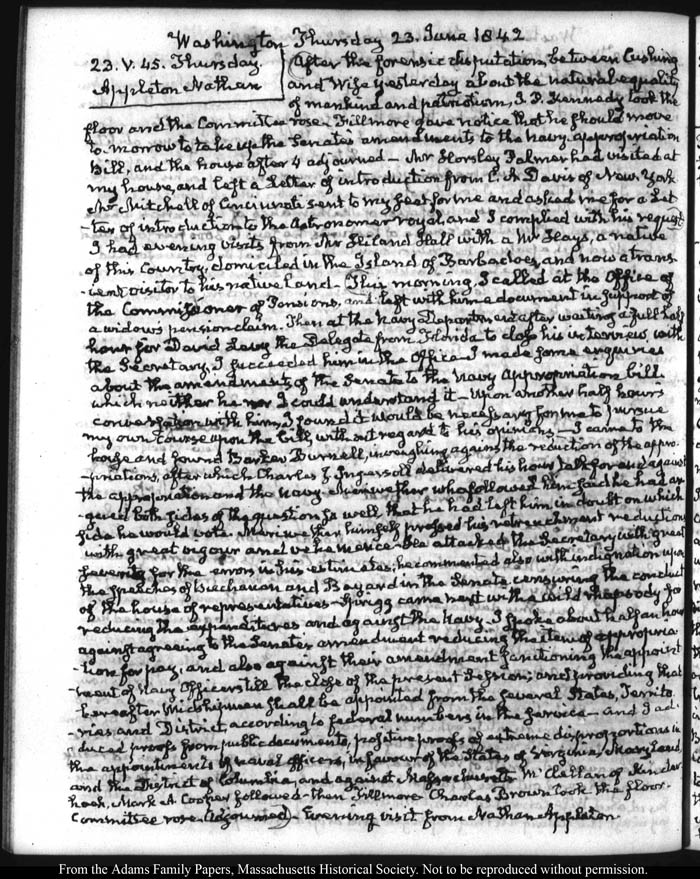 Washington Thursday 23. June 1842
23. V. 45. Thursday.
Appleton Nathan
After the forensic disputation, between Cushing
and Wise yesterday about the natural equality
of mankind and patriotism, J. P. Kennedy took the
floor and the Committee rose. Fillmore gave notice that he should move
to-morrow to take up the Senate's amendments to the navy appropriation
Bill, and the house after 4 adjourned — Mr Horsley Palmer had visited at
my house, and left a Letter of introduction from C. A Davis of New-York
Mr Mitchell of Cincinnati sent to my seat for me and asked me for a Let
-ter of introduction to the Astronomer royal, and I complied with his request
I had evening visits from Mr Hiland Hall with a Mr Hays, a native
of this Country, domiciled in the Island of Barbadoes, and now a trans-
-ient visitor to his native land — This morning, I called at the Office of
the Commissioner of Pensions, and left with him a document in support of
a widow's pension claim. Then at the Navy Department after waiting a full half
hour for David Levy the Delegate from Florida to close his interview with
the Secretary, I succeeded him in the Office. I made some enquiries
about the amendments of the Senate to the Navy Appropriation bill
which neither he nor I could understand it — Upon another half hour's
conversation with him, I found it would be necessary for me to pursue
my own course upon the bill, without regard to his opinions — I came to the
house and found Barker Burnell, inveighing against the reduction of the appro-
-priations, after which Charles J. Ingersoll delivered his hour talk for and against
the appropriation and the Navy. Meriwether who followed him said he had ar
-gued both sides of the question so well that he had left him in doubt on which
side he would vote. Meriwether himself pressed his retrenchment reduction
with great vigour and vehemence. He attacked the Secretary with great
severity for the errors in his estimates; he commented also with indignation upon
the speeches of Buchanan and Bayard in the Senate censuring the conduct
of the house of representatives — Sprigg came next with a wild rhapsody for
reducing the expenditures and against the Navy. I spoke about half an hour
against agreeing to the Senate's amendment reducing the item of appropria
-tion for pay, and also against their amendment sanctioning the appoint
-ment of Navy Officers till the close of the present Session; and providing that
hereafter Midshipmen shall be appointed from the several States, Territo-
-ries and District according to federal numbers in the service — and I ad
-duced proofs from public documents, positive proofs of extreme disproportions in
the appointments of naval officers, in favour of the States of Virginia, Maryland,
and the District of Columbia, and against Massachusetts Mc Clellan of Kinder-
hook, Mark A. Cooper followed — then Fillmore. Charles Brown took the floor.
Committee rose. (Adjourned) — Evening visit from Nathan Appleton
From the Adams Family Papers, Massachusetts Historical Society. Not to be reproduced without permission.